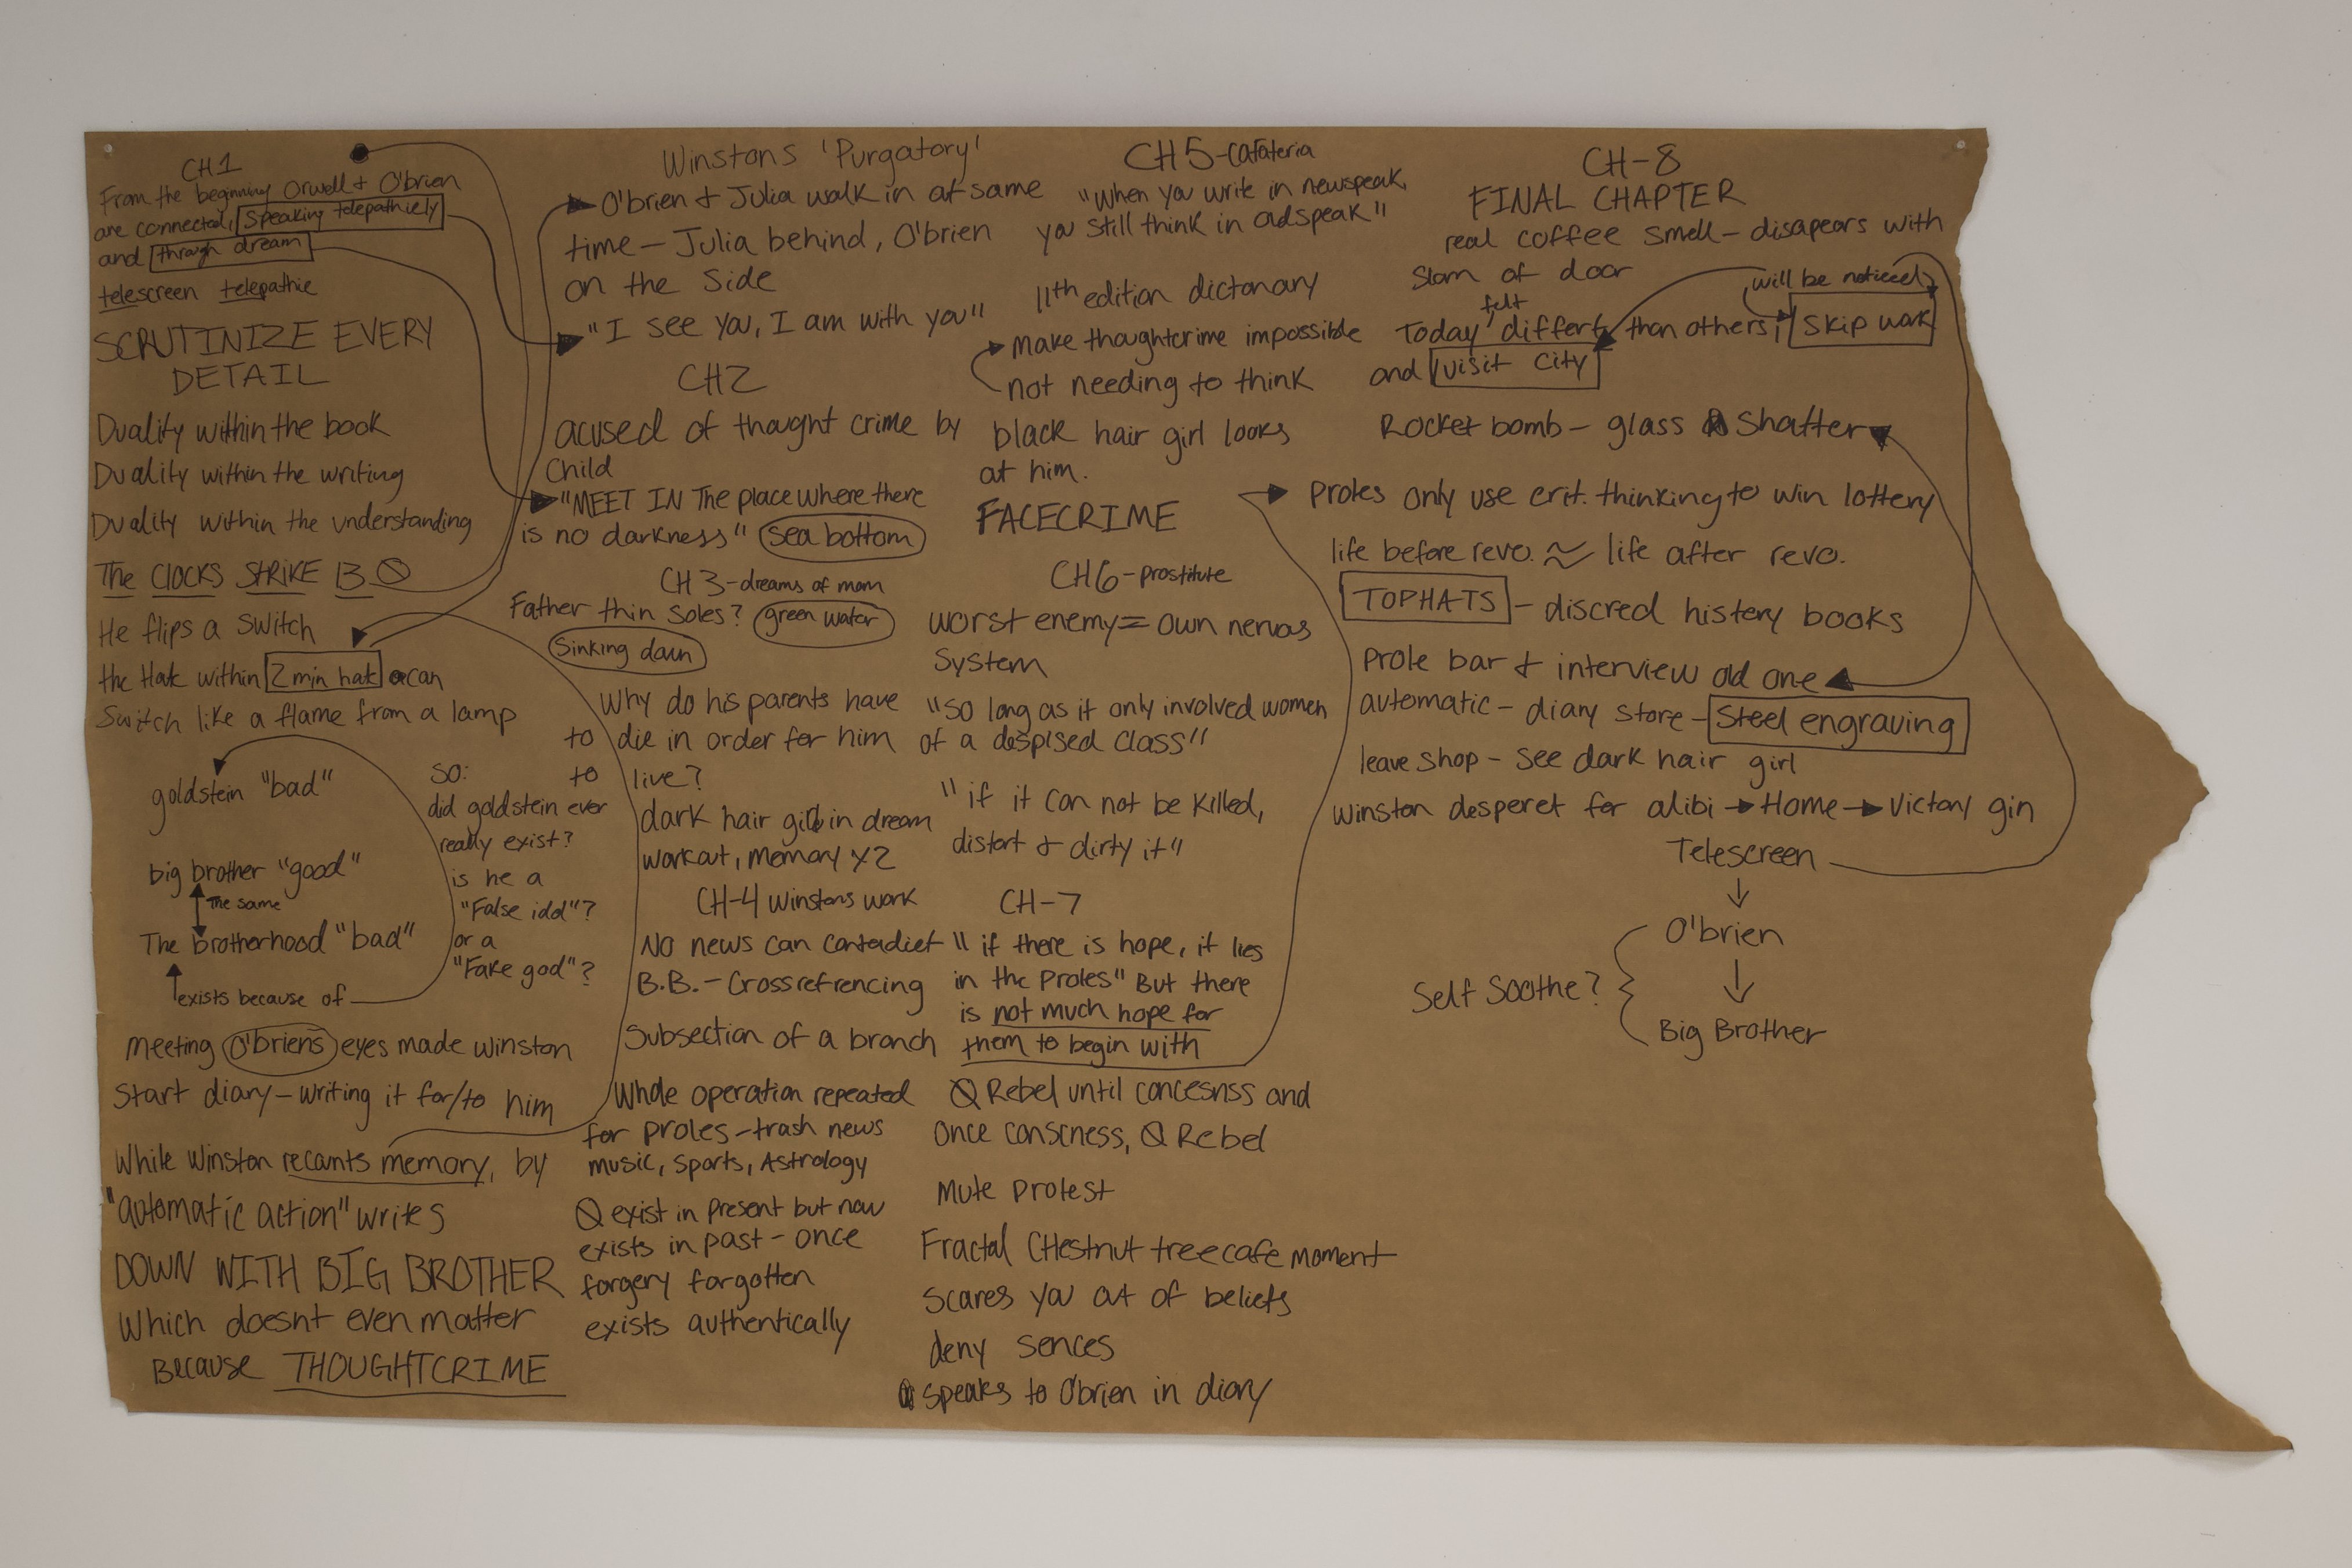 CH1
From the beginning Orwell & O'brien
are connected, speaking telepathiely
and through dream
telescreen telepathie
SCRUTINIZE EVERY
DETAIL
Duality within the book
Duality within the writing
Duality within the understanding
The CLOCKS STRIKE 13
He flips a switch
the Hate within 2 min hate can
Switch like a flame from a lamp
goldstein "bad"
big brother "good"
The same
The brotherhood "bad"
exists because of
so:
did goldstein ever
really exist?
is he a
"False idol"?
or a
"Fake god"?
Meeting O'briens eyes made winston
Start diary – writing it for/to him
While Winston recants memory, by
"automatic action" writes
DOWN WITH BIG BROTHER
Which doesnt even matter
Because THOUGHTCRIME
Winstons 'Purgatory'
O'brien & Julia walk in at same
time – Julia behind, O'brien
on the side
"I see you, I am with you"
CH2
acused of thought crime by
child
"MEET IN The place where there
is no darkness" sea bottom
CH3 - dreams of mom
Father thin soles? green water
Sinking down
Why do his parents have
to die in order for him
to live?
dark hair girl in dream
workout, memory x2
CH-4 Winstons work
No news can contradict
B.B. – Crossrefrencing
Subsection of a branch
Whole operation repeated
for proles – trash news
music, sports, Astrology
Ø exist in present but now
exists in past – once
forgery forgotten
exists authentically
CH5 - Cafateria
"When you write in newspeak,
you still think in oldspeak"
11th edition dictonary
make thoughtcrime impossible
not needing to think
black hair girl looks
at him.
FACECRIME
CH6 - prostitute
worst enemy = own nervos
system
"So long as it only involved women
of a despised class"
"if it can not be killed,
distort & dirty it"
CH-7
"if there is hope, it lies
in the Proles" But there
is not much hope for
them to begin with
Ø Rebel until concesnss and
once conscness, Ø Rebel
Mute Protest
Fractal CHestnut tree cafe moment
scares you out of beliefs
deny sences
speaks to O'brien in diary
CH-8
FINAL CHAPTER
real coffee smell – disapears with
slam of door
will be noticed
felt
Today differt than others, skip work
and visit city
Rocket bomb – glass shatter
proles only use crit. thinking to win lottery
life before revo. ≈ life after revo.
TOPHATS – discred histery books
prole bar & interview old one
automatic – diary store – Steel engraving
leave shop – see dark hair girl
winston desperet for alibi → Home → Victory gin
Telescreen
↓
O'brien
↓
Self Soothe?
Big Brother